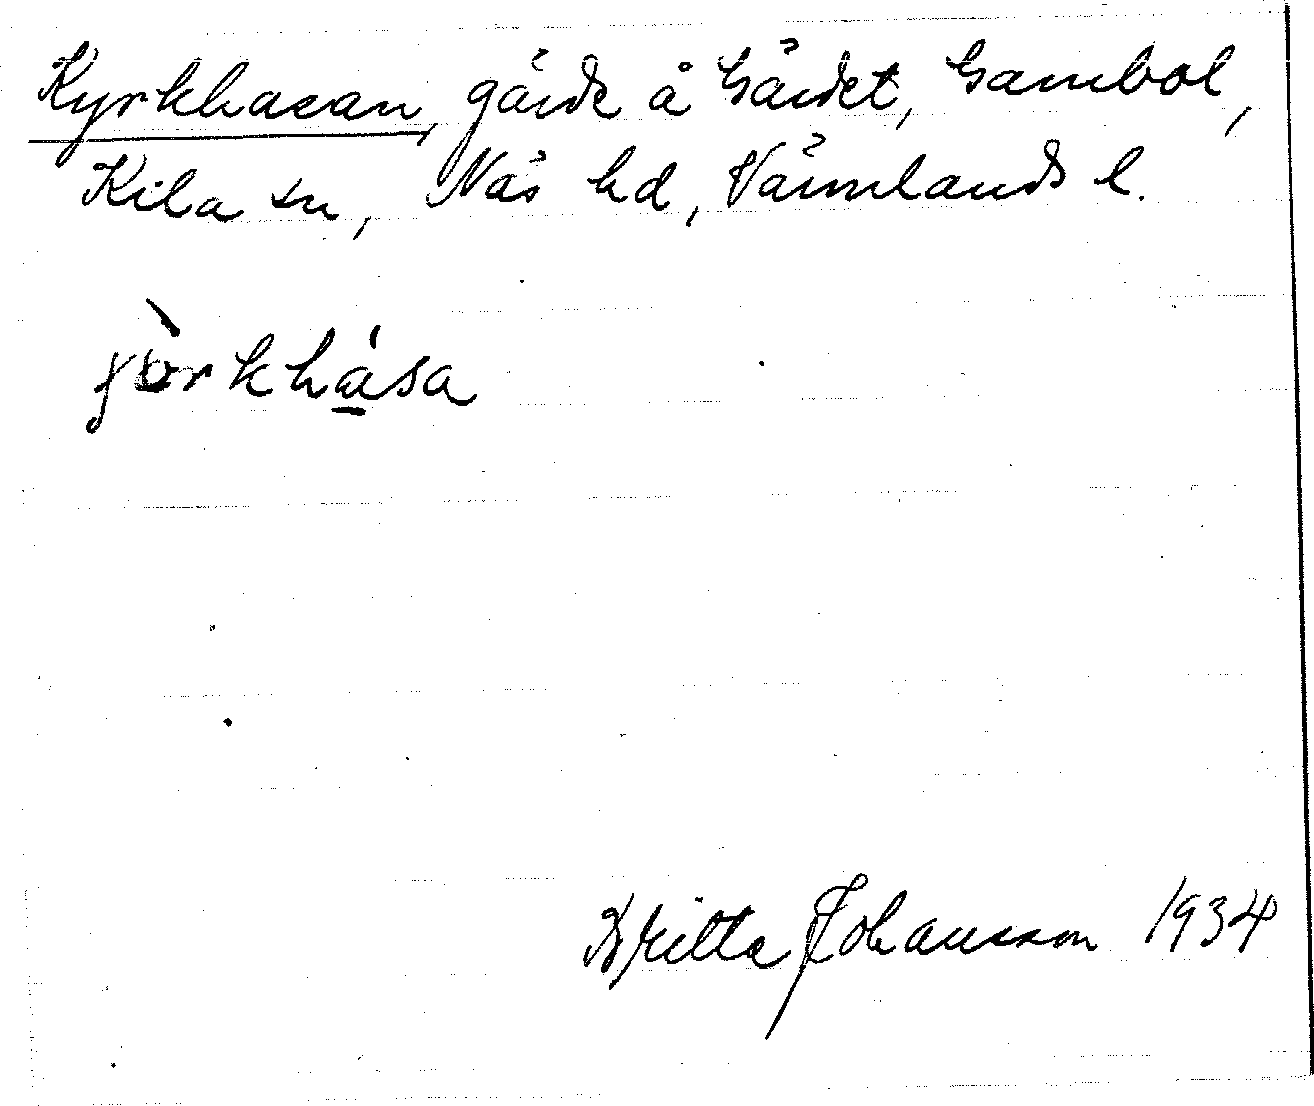 Kyrkhasan, gärde å Gärdet, Gambol,
Kila sn, Näs hd, Värmlands l.
Britta Johansson 1934